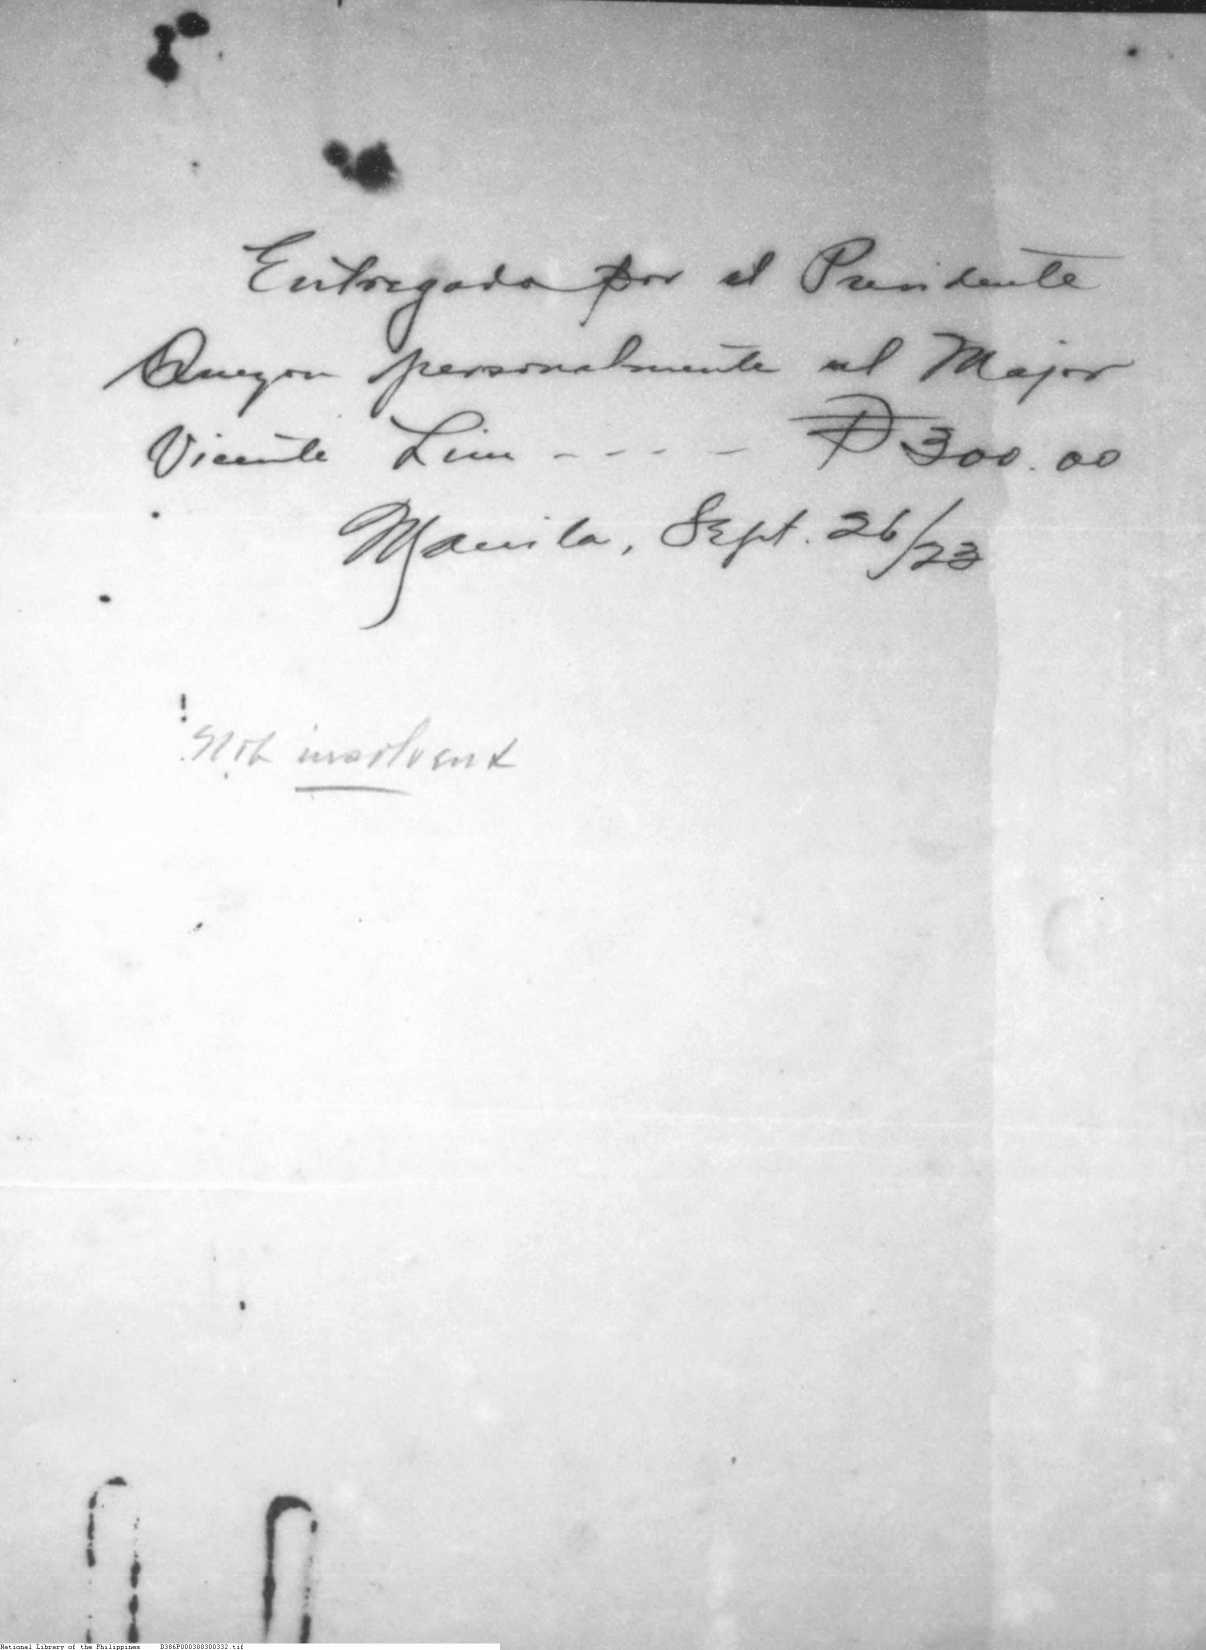 Entregado por el Presidente
Quezon personalmente al Major
Vicente Lim - - - - ₱300.00
Manila, Sept. 26/23
Not insolvent
National Library of the Philippines B386P000388300332.tif